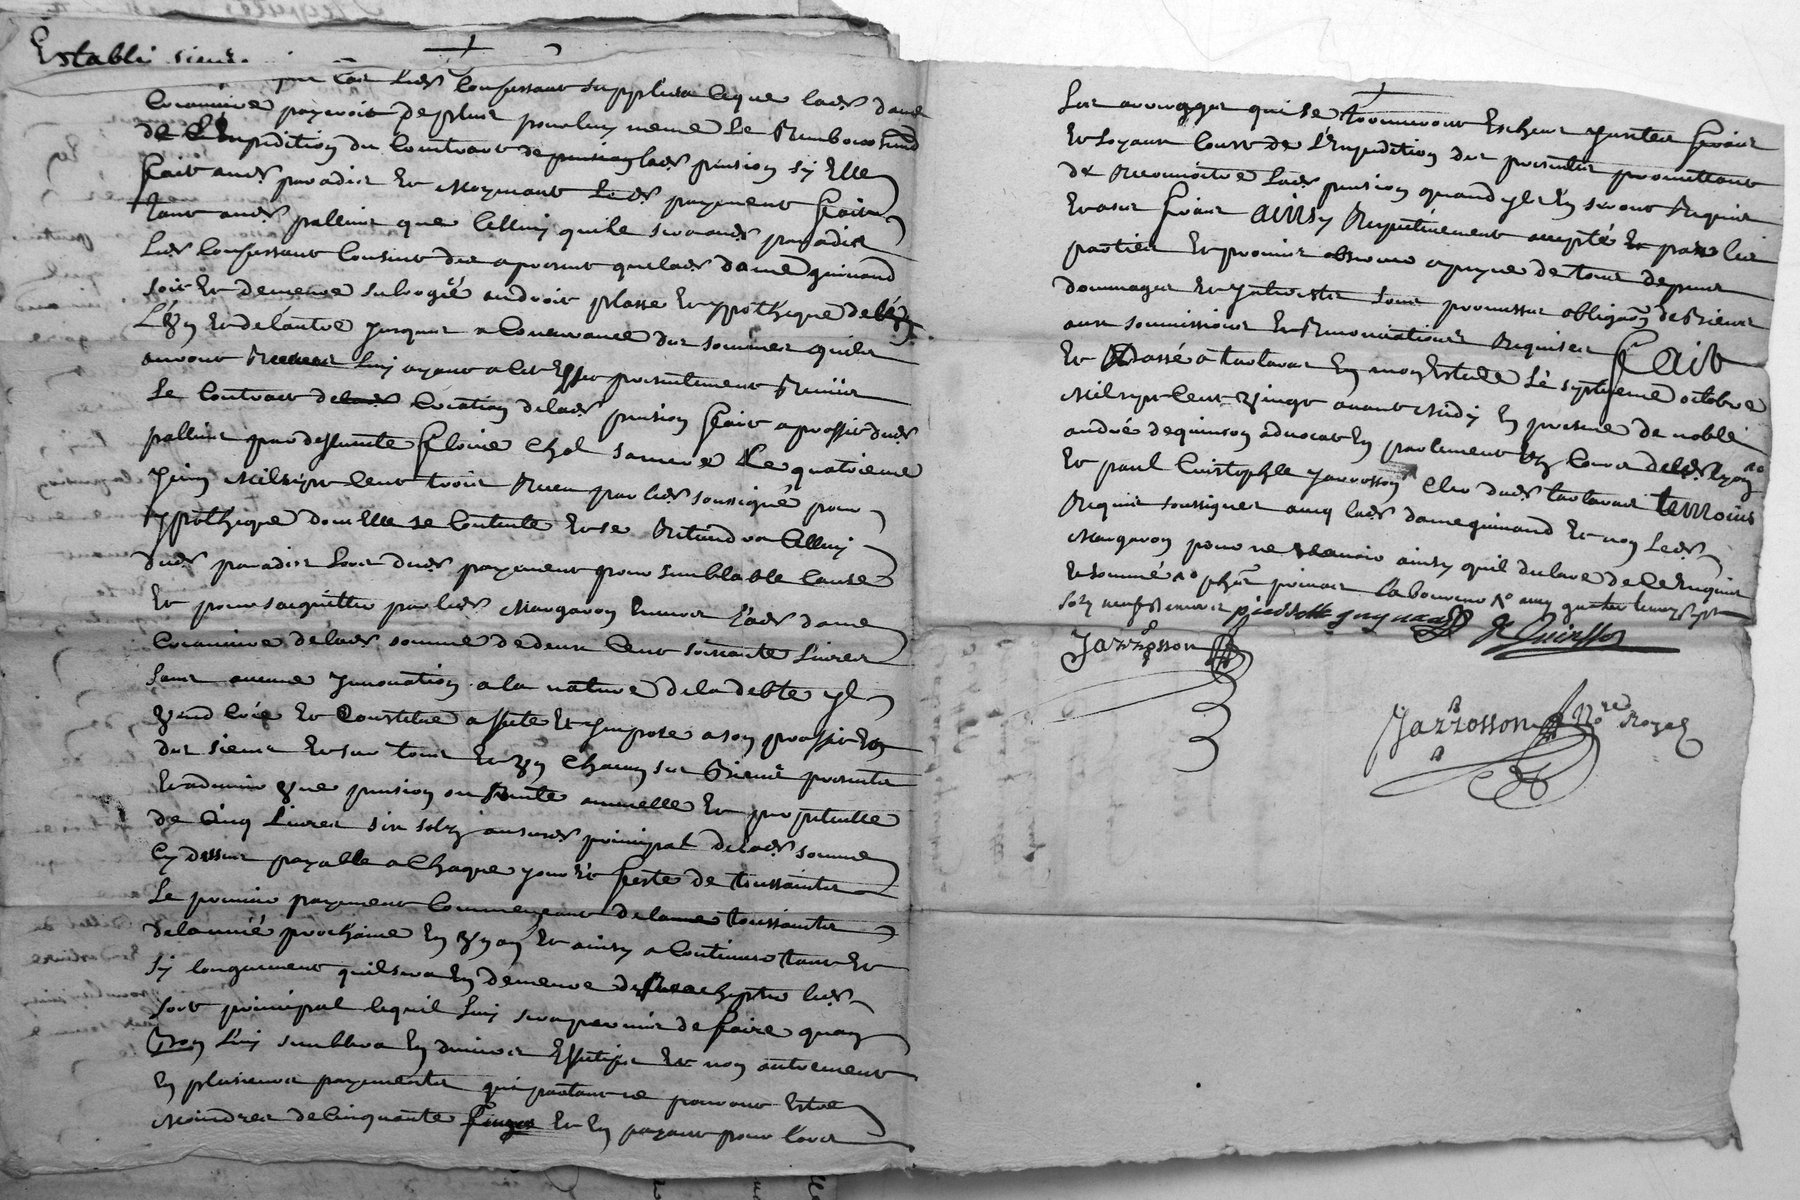 Establi sieur
par led confessant supplier ce que lad dame
Coconniere payeroit de plus pour luy meme le Rembourcement
de L'Expedition du Contract de pension lad pension sy Elle
fait aud paradis Et Moyenant led payement fait
tant aud pallier que Celluy quil sera aud paradis
Led Confessant Consent des a present que lad dame guinand
soit Et demeure subrogée au droit plasse Et ypothèque de
L'un Et de lautre jusques a Concurrance des sommes quils
auront Receues luy ayant a cet Effet presentement Remis
Le Contract de Creation de lad pension fait a proffit dud
pallier par deffunte Cloire Chol sa mere Le quatrieme
Juin Mil sept Cent trois Receu par led soussigné pour
ypothèque dont Elle se Contente Et se Retiendra Celluy
dud paradis Lors dud payement pour semblable Cause
Et pour s'acquitter par led Margaron Envers Lad dame
Coconniere de lad somme de deux Cent soixante Livres
sans aucune Innovation a la nature de la debte yl
Vend Crée Et Constitue assete Et Impose a son proffit Et
des siens Et sur tous Et Un Chacun ses Biens presents
Et advenir Une pension ou Rente annuelle Et perpetuelle
de Cinq Livres six solz au sus principal de lad somme
Cy dessus payable a Chaque jour Et feste de toussaints
Le premier payement Commençant de la toussaints
de lannée prochaine En Un an Et ainsy a Continuer tant Et
sy longuement quil sera En demeure de Rachepter led
sort principal lequil luy sera permis de faire quand
bon luy semblera En deniers Effectifs Et non autrement
En plusieurs payements qui pourtant ne pourront Estre
Moindres de Cinquante Livres Et En payant pour lors
les arrerages qui se trouveront Escheus Justes frais
Et loyaux Cousts de L'Expedition des presentes promettant
de Reconnoitre Lad pension quand yl En seront Requis
Et a ses frais ainsy Respectivement accepté Et par les
parties Et promis observer a peyne de tous depens
dommages Et Interests sous promesses obliga'on de Biens
aux soumissions Et Renonciations Requises fait
Et Passé a tartaras En mon Estude Le septieme octobre
Mil sept Cent Vingt avant Midy En presence de noble
andré dequinson advocat En parlement Et Cours de Lyon
Et paul Cristophle Jazzosson Clerc dud tartaras temoins
Requis soussignes avec lad dame guinand Et non led
Margaron pour ne scavoir ainsy quil declare de Ce Enquis
Et sommé
solz neuf deniers pierrette guynand De Quinsson
Jazzosson
Jazzosson No.re Royal